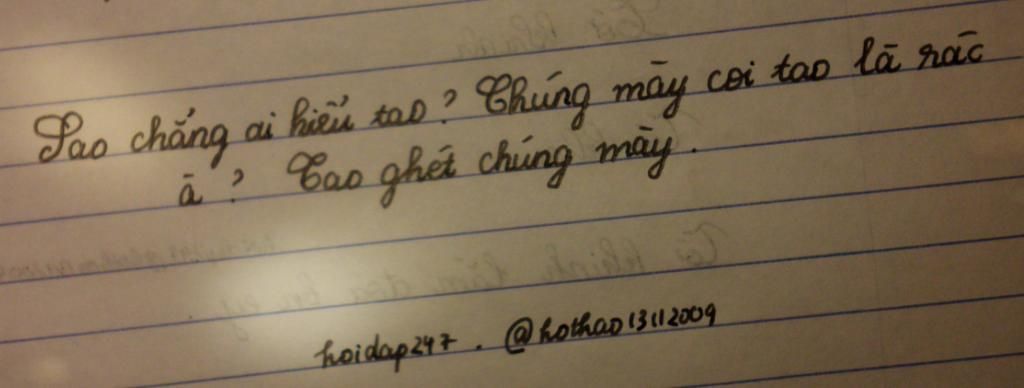 Sao chẳng ai hiểu tao? Chúng mày coi tao là rác
à? Tao ghét chúng mày.
hoidap247. @hothao13112009